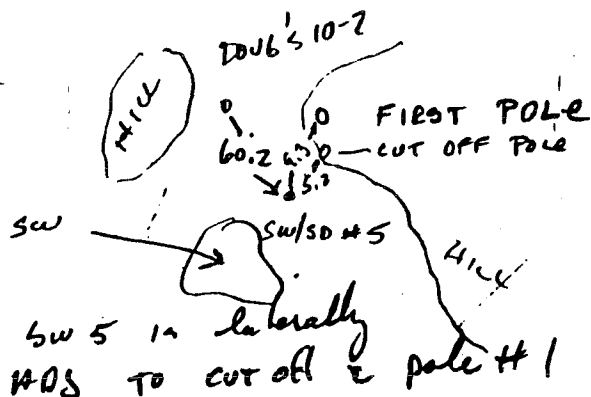 DOUG'S 10-2
HILL
FIRST POLE
60.2
CUT OFF POLE
5.3
SW
SW/SD #5
HILL
SW 5 is laterally
ADJ TO CUT off & pole #1